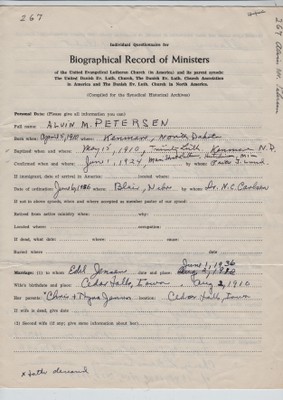 267
Individual Questionnaire for
Biographical Record of Ministers
of the United Evangelical Lutheran Church (in America) and its parent synods:
The United Danish Ev. Luth. Church, The Danish Ev. Luth. Church Association
in America and The Danish Ev. Luth. Church in North America.
(Compiled for the Synodical Historical Archives)
Personal Data: (Please give all information you can)
Full name: ALVIN M. PETERSEN
Date when: April 8, 1910 where: Kenmare, North Dakota
Baptized when and where: May 15, 1910, Trinity Luth. Kenmare N.D.
Confirmed when and where: June 1, 1924 Main Hutchinson, Minn by whom: Pastor
If immigrant, date of arrival in America: located where:
Date of ordination: June 1936 where: Blair, Nebr. by whom: Dr. N.C. Carlsen
If not in above synods, when and where accepted as member pastor of our synod:
Retired from active ministry when: why:
Located where: occupation:
If dead, what date: where: cause
Buried where: by whom:
June 1, 1936
Marriage: (1) to whom: Edel Jensen date and place:
Wife's birthdate and place: Cedar Falls, Iowa, Aug 2, 1910
Her parents: *Chris & Thyra Jensen location: Cedar Falls, Iowa
If wife is dead, give date
(2) Second wife (if any; give same information about her):
x father deceased
267 Alvin M. Petersen